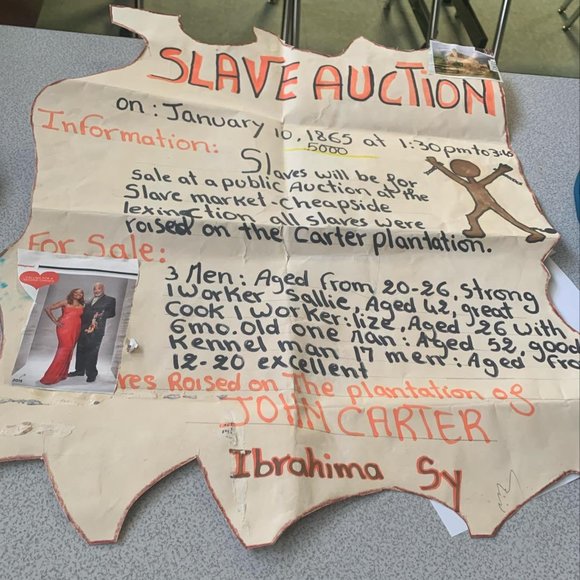 SLAVE AUCTION
on : January 10, 1865 at 1:30pm to
5000
Information:
Slaves will be for
sale at a public Auction at the
Slave market - Cheapside
lexinction all slaves were
raised on the Carter plantation.
For Sale:
3 Men: Aged from 20-26, strong
1 worker, Sallie, Aged 42, great
Cook 1 worker: lize, Aged 26 with
6mo. old one nan: Aged 52, good
Kennel man 17 men: Aged fro
12-20 excellent
res Raised on The plantation of
JOHN CARTER
Ibrahima Sy